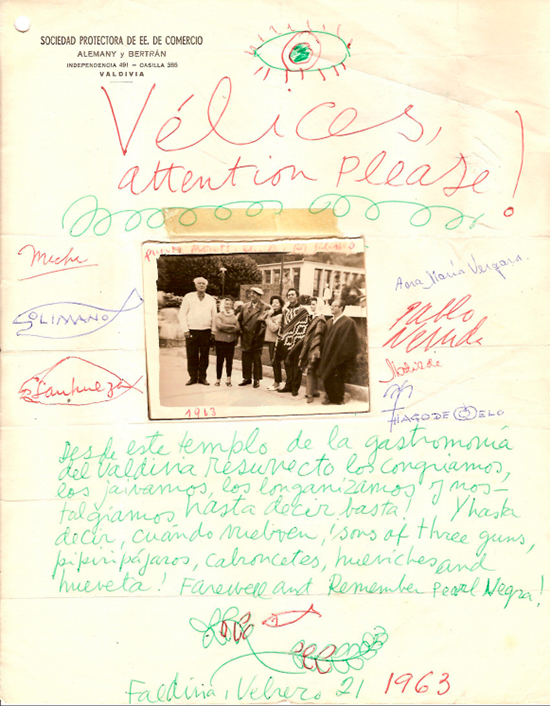 SOCIEDAD PROTECTORA DE EE. DE COMERCIO
ALEMANY y BERTRÁN
INDEPENDENCIA 491 - CASILLA 288
VALDIVIA
Vélices,
attention please!
1963
Meche
SOLIMANO
Sanhueza
Ana María Vergara.
Pablo
Neruda
Matilde
THIAGO DE MELO
Desde este templo de la gastronomía
del Valdivia resurrecto los congriamos,
los jaivamos, los longanizamos y nos-
talgiamos hasta decir basta! Y hasta
decir, cuándo vuelven, sons of three guns,
pipiripájaros, cabroncetes, hueviches and
hueveta! Farewell and Remember Pearl Negra!
Faldivia, Vebrero 21 1963